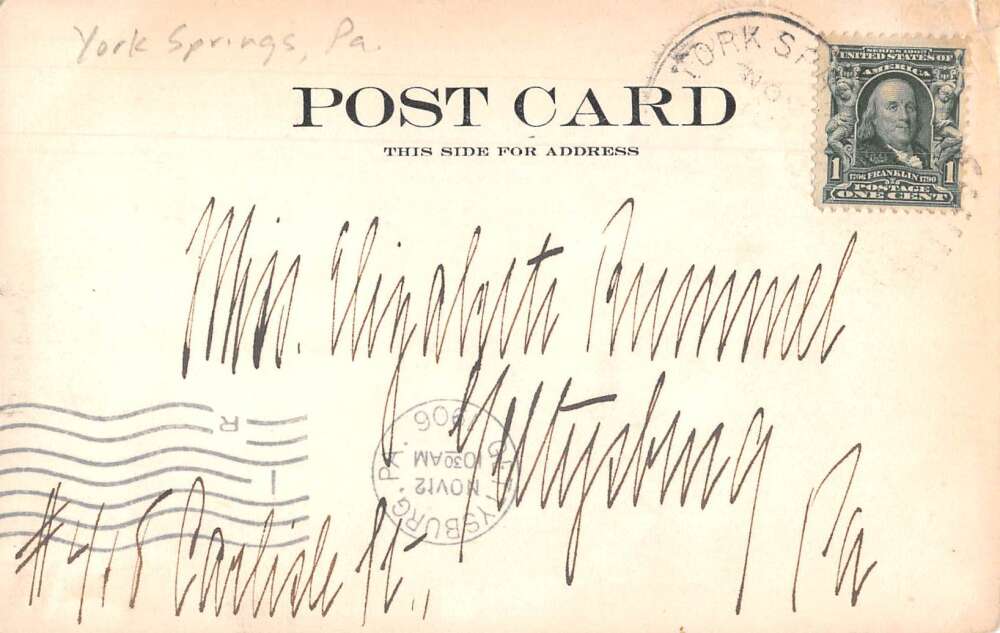 York Springs, Pa.
YORK SP
NO
POST CARD
THIS SIDE FOR ADDRESS
SERIES 1902
UNITED STATES OF
AMERICA
1 1
1706 FRANKLIN 1790
POSTAGE
ONE CENT
Miss. Elizabeth Rummel
Gettysburg
Pa
#415 Carlisle St.,
GETTYSBURG, PA.
NOV 12
10 30 AM
1906
R
I